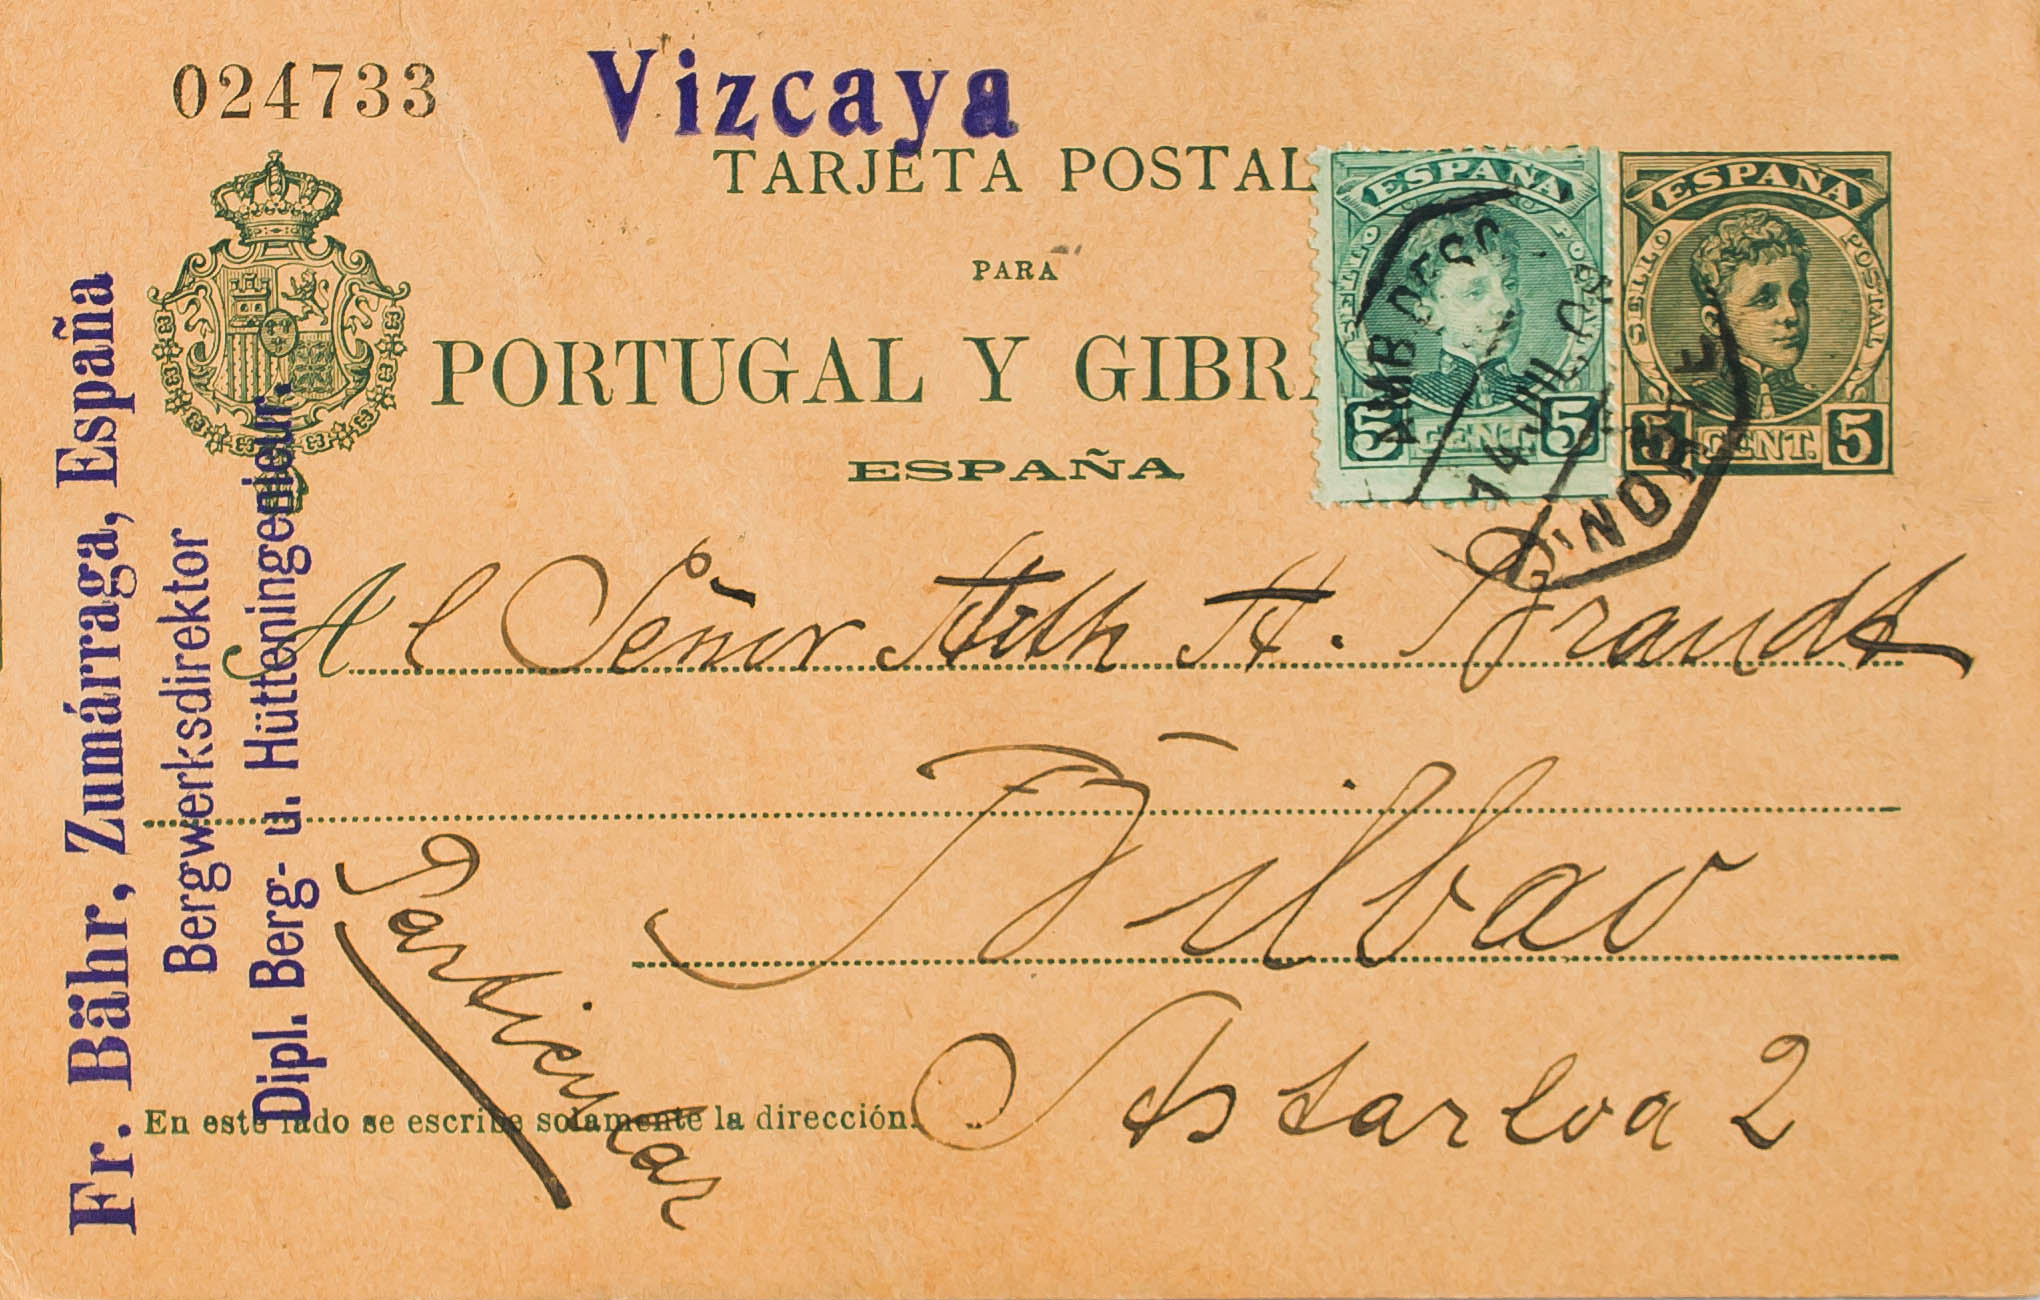 024733
Vizcaya
TARJETA POSTAL
PARA
PORTUGAL Y GIBRA
ESPAÑA
ESPAÑA
SELLO POSTAL
5 CENT. 5
ESPAÑA
SELLO POSTAL
5 CENT. 5
AMB DESC
14 JUL
NORTE
Al Señor A. Brandt
Bilbao
Astarloa 2
Particular
En este lado se escribe solamente la dirección.
Fr. Bähr, Zumárraga, España
Bergwerksdirektor
Dipl. Berg- u. Hütteningenieur.